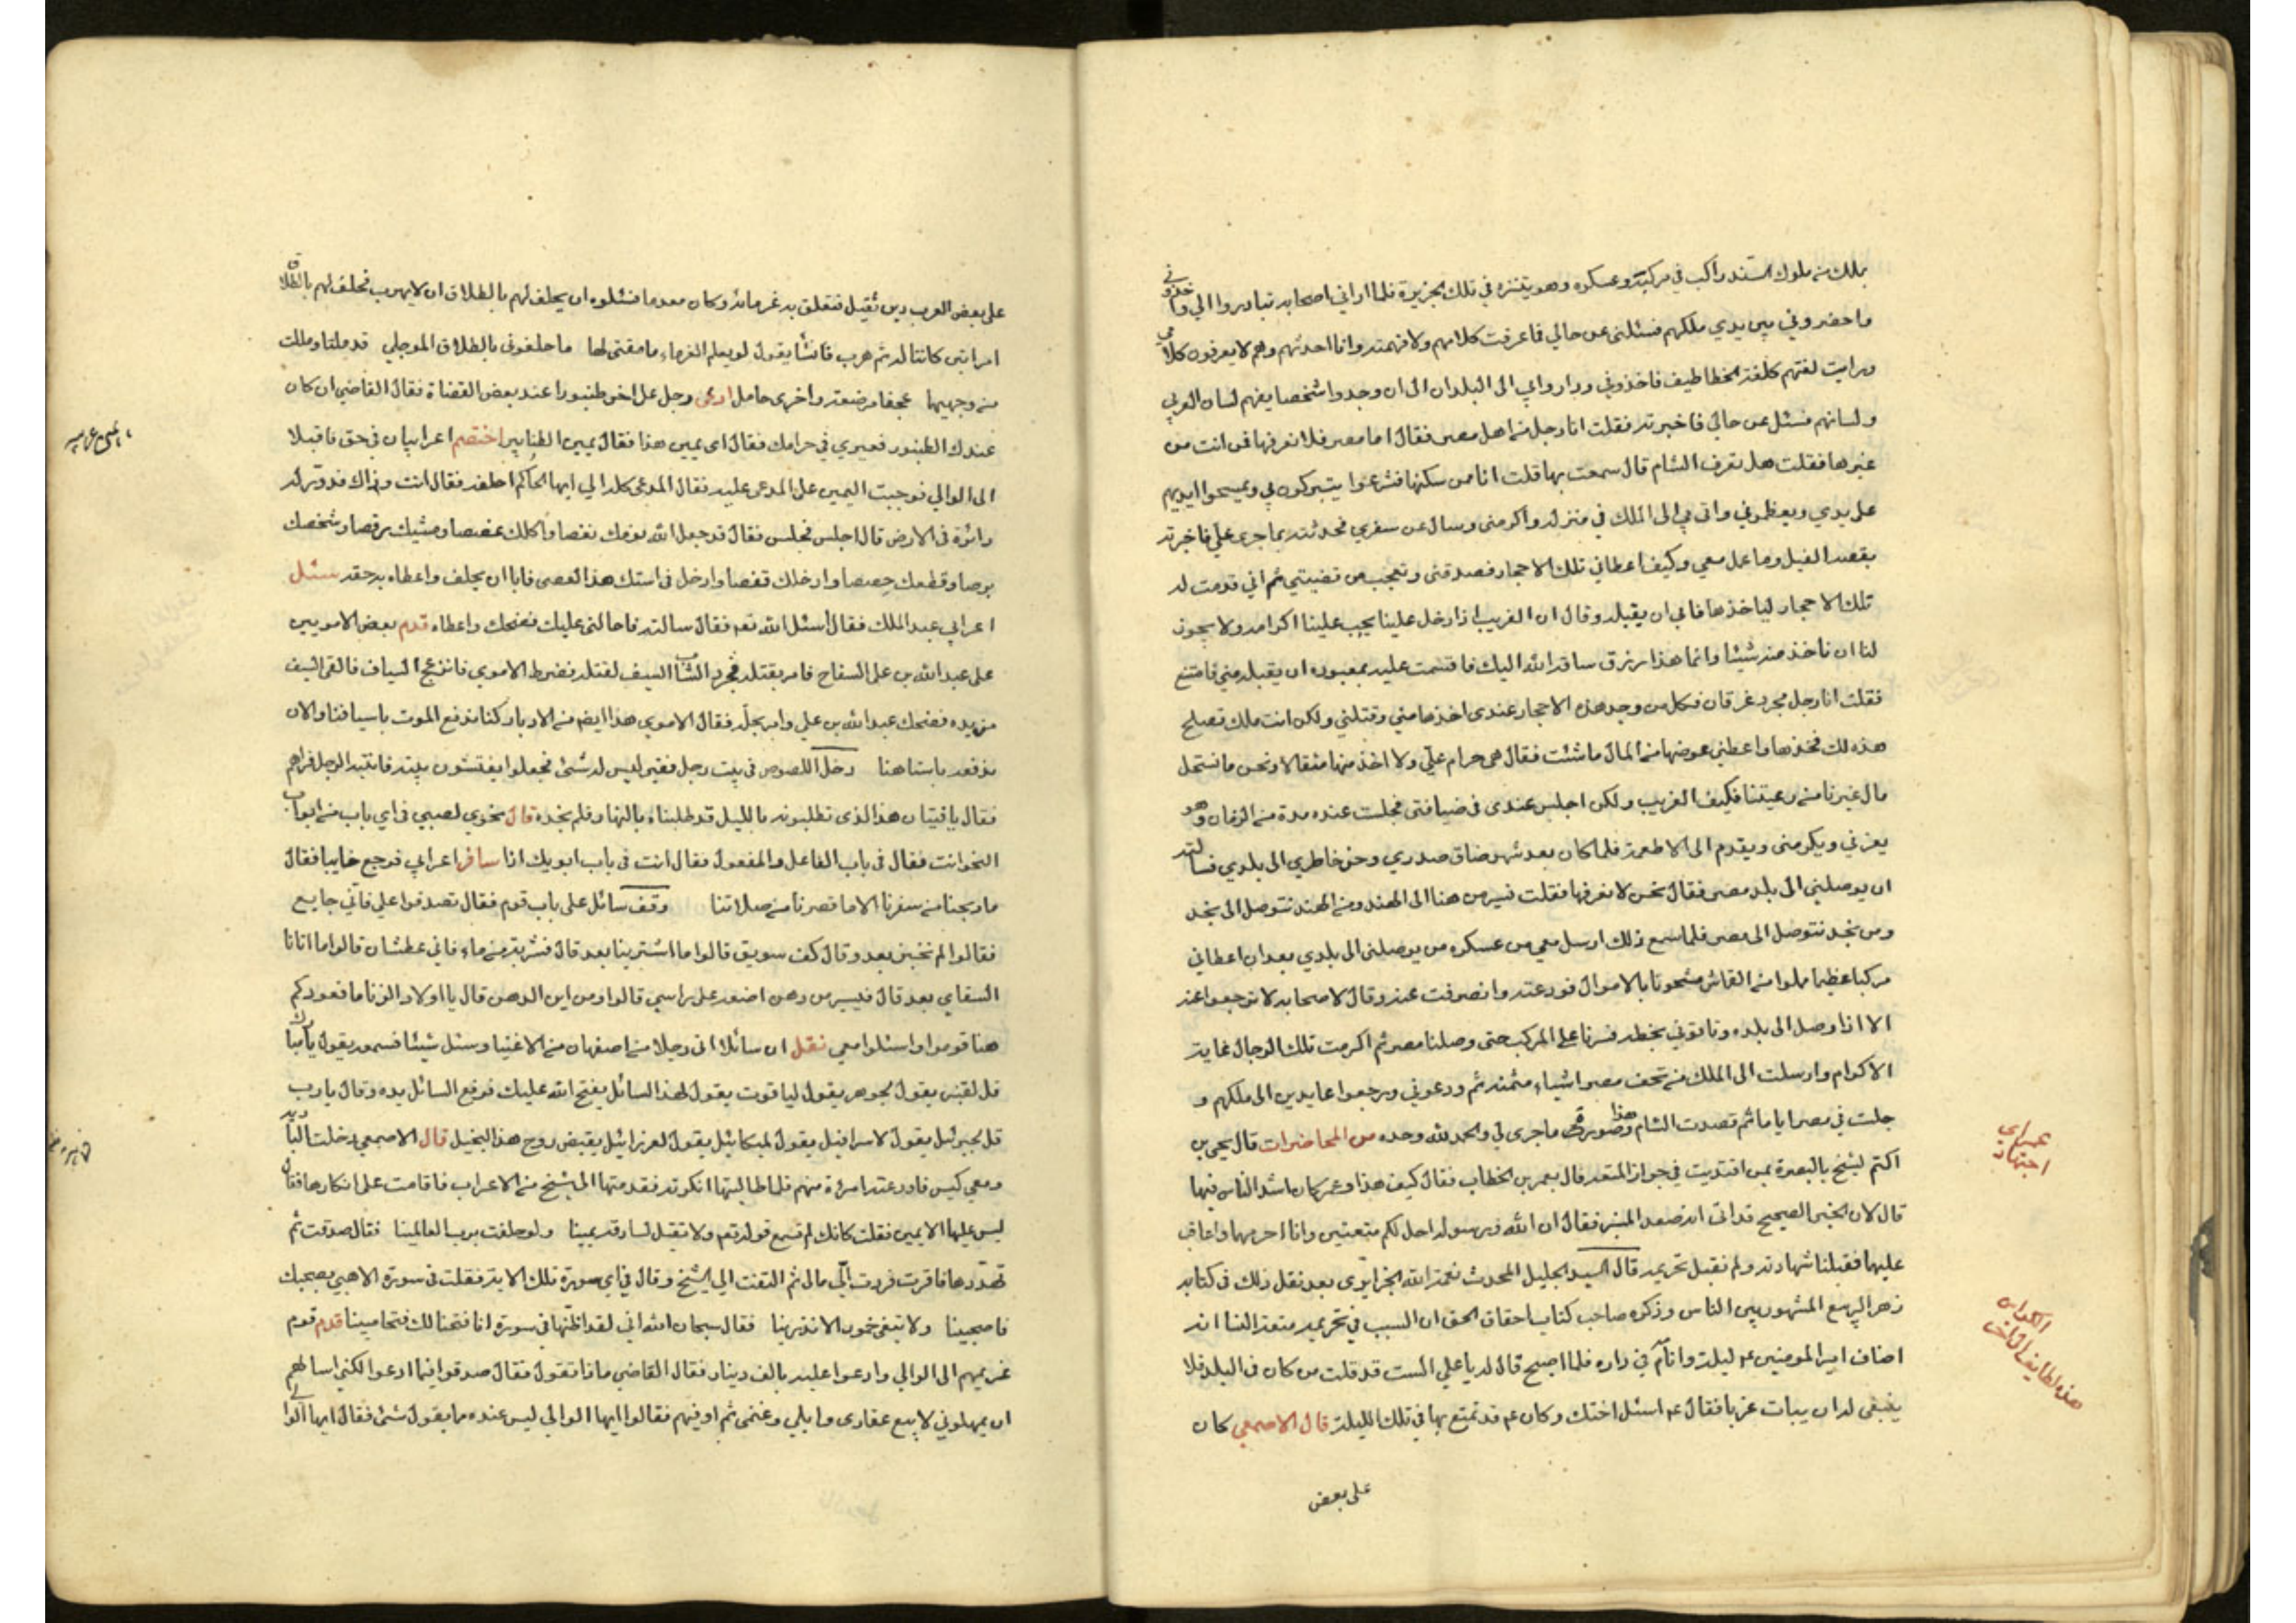 بملك من ملوك السند راكب في مركبته وعسكره وهو يتنزه في تلك الجزيرة فلما اراني اصحابه تبادروا الي واخذوني
واحضروني بين يدي ملكهم فسئلني عن حالي فما عرفت كلامهم ولا فهمته وانا احدثهم وهم لا يعرفون كلامي
ورايت لغتهم كلغة الخطاطيف فاخذوني وداروا بي الى البلدان الى ان وجدوا شخصا يفهم لسان العربي
ولسانهم فسئل عن حالي فاخبرته فقلت انا رجل من اهل مصر فقال اما مصر فلا نعرفها فمن انت من
غيرها فقلت هل تعرف الشام قال سمعت بها قلت انا من سكنها فشرعوا يتبركون بي ويمسحوا ايديهم
على يدي ويعظموني واتى بي الى الملك في منزله واكرمني وسال عن سفري فحدثته بما جرى علي فاخبرته
بقصد الفيل وما عمل معي وكيف اعطاني تلك الاحجار فصدقني وتعجب من قضيتي ثم اني قدمت له
تلك الاحجار لياخذها فابى ان يقبله وقال ان الغريب اذا دخل علينا يجب علينا اكرامه ولا يجوز
لنا ان ناخذ منه شيئا وانما هذا رزق ساقه الله اليك فاقسمت عليه بمعبوده ان يقبله مني فامتنع
فقلت انا رجل مجرد غرقان فكل من وجد هذه الاحجار عندى اخذها مني وقتلني ولكن انت ملك تصلح
هذه لك فخذها واعطني عوضها من المال ما شئت فقال هى حرام علي ولا اخذ منها مثقالا ونحن ما نستحل
مال غيرنا من رعيتنا فكيف الغريب ولكن اجلس عندى في ضيافتى فجلست عنده مدة من الزمان وهو
يعزني ويكرمنى ويقدم الى الاطعمة فلما كان بعد شهر ضاق صدري وحن خاطري الى بلدي فسالته
ان يوصلني الى بلد مصر فقال نحن لا نعرفها فقلت نسير من هنا الى الهند ومن الهند نتوصل الى نجد
ومن نجد نتوصل الى مصر فلما سمع ذلك ارسل معي من عسكره من يوصلنى الى بلدي بعد ان اعطاني
مركبا عظيما مملوا من القماش مشحونا بالاموال فودعته وانصرفت عنه وقال لاصحابه لا ترجعوا عنه
الا اذا وصل الى بلده وتاتوني بخطه فسرنا على المركب حتى وصلنا مصر ثم اكرمت تلك الرجال غاية
الاكرام وارسلت الى الملك من تحف مصر اشياء مثمنه ثم ودعوني ورجعوا عايدين الى ملكهم و
جلت في مصر اياما ثم قصدت الشام وهذا صورة ما جرى لي والحمد لله وحده من المحاضرات قال يحيى بن
اكثم لشيخ بالبصرة بمن اقتديت في جواز المتعه قال بعمر بن الخطاب فقال كيف هذا وعمر كان اشد الناس فيها
قال لان الخبر الصحيح قد اتى انه صعد المنبر فقال ان الله ورسوله احل لكم متعتين وانا احرمهما واعاقب
عليهما فقبلنا شهادته ولم نقبل تحريمه قال السيد الجليل المحدث نعمة الله الجزايرى بعد نقل ذلك في كتابه
زهر الربيع المشهور بين الناس وذكره صاحب كتاب احقاق الحق ان السبب في تحريمه متعة النسا انه
اضاف امير المومنين ع ليلة وانامه في داره فلما اصبح قال له يا علي الست قد قلت من كان في البلد فلا
ينبغي له ان يبات عزبا فقال ع اسئل اختك وكان ع قد تمتع بها في تلك الليلة قال الاصمعي كان
على بعض
على بعض العرب دين ثقيل فتعلق به غرمائه وكان معدما فسئلوه ان يحلف لهم بالطلاق ان لا يهرب فحلف لهم بالطلاق
امراتين كانتا له ثم هرب فانشا يقول لو يعلم الغرماء ما مقتى لها ما حلفونى بالطلاق الموجلي قد ملتا ومللت
من وجهيهما عجفا مرضعة واخرى حامل ادعى رجل على اخر طنبورا عند بعض القضاة فقال القاضي ان كان
عندك الطنبور فعيري في حرامك فقال اى يمين هذا فقال يمين الطنابير اختصم اعرابيان في حق فاقبلا
الى الوالي فوجبت اليمين على المدعى عليه فقال المدعى كله الي ايها الحاكم احلفه فقال انت وذاك فدور له
دائرة في الارض قال اجلس فجلس فقال قد جعل الله نومك نغصا واكلك غصصا ومشيك رقصا وشخصك
برصا وقطعك حصصا وادخلك قفصا وادخل في استك هذا العصى فابا ان يحلف واعطاه به حقه سئل
اعرابي عبد الملك فقال اسئل الله تعه فقال سالته فاحالنى عليك فضحك واعطاه قدم بعض الامويين
على عبد الله بن على السفاح فامر بقتله فجرد الشاب السيف لقتله فضرط الاموي فانزعج السياف فالقى السيف
من يده فضحك عبد الله بن علي وامر بخله فقال الاموي هذا ايضا من الادبار كنا ندفع الموت باسيافنا والان
ندفعه باستاهنا دخل اللصوص في بيت رجل فقير ليس له شئ فجعلوا يفتشون بيته فانتبه الرجل فراهم
فقال يا فتيان هذا الذى تطلبونه بالليل قد طلبناه بالنهار فلم نجده قال نحوي لصبي في اي باب من ابواب
النحو انت فقال في باب الفاعل والمفعول فقال انت في باب ابويك اذا سافر اعرابي فرجع خايبا فقال
ما ربحنا من سفرنا الا ما قصرنا من صلاتنا وقف سائل على باب قوم فقال تصدقوا علي فاني جايع
فقالوا لم نخبز بعد وقال كف سويق قالوا ما اشترينا بعد قال فشربة من ماء فاني عطشان قالوا ما اتانا
السقاي بعد قال فيسير من دهن اضعه على راسي قالوا ومن اين الدهن قال يا اولاد الزنا ما قعودكم
هنا قوموا واسئلوا معي نقل ان سائلا اتى رجلا من اصفهان من الاغنيا وسئل شيئا فسمعه يقول يا مبارك
قل لقنبر يقول لجوهر يقول لياقوت يقول لهذا السائل يفتح الله عليك فرفع السائل يده وقال يارب
قل لجبرئيل يقول لاسرافيل يقول لميكائيل يقول لعزرائيل يقبض روح هذا البخيل قال الاصمعي دخلت البادية
ومعي كيس فاودعته امرءة منهم فلما طالبتها انكرته فقدمتها الى شيخ من الاعراب فاقامت على انكارها فقال
ليس عليها الا يمين فقلت كانك لم تسمع قوله تعه ولا تقبل لسارقة يمينا ولو حلفت برب العالمينا فقال صدقت ثم
تهددها فاقرت فردت الي مالى ثم التفت الي الشيخ وقال في اي سورة تلك الاية فقلت في سورة الا هبي بصحنك
فاصبحينا ولا تبقى خمور الاندرينا فقال سبحان الله اني لقد اظنها في سورة انا فتحنا لك فتحا مبينا قدم قوم
غريمهم الى الوالي وادعوا عليه بالف دينار فقال القاضي ماذا تقول فقال صدقوا فيما ادعوا لكني اسالهم
ان يمهلوني لابيع عقارى وابلي وغنمى ثم اوفيهم فقالوا ايها الوالي ليس عنده ما يقول شئ فقال ايها الوالي